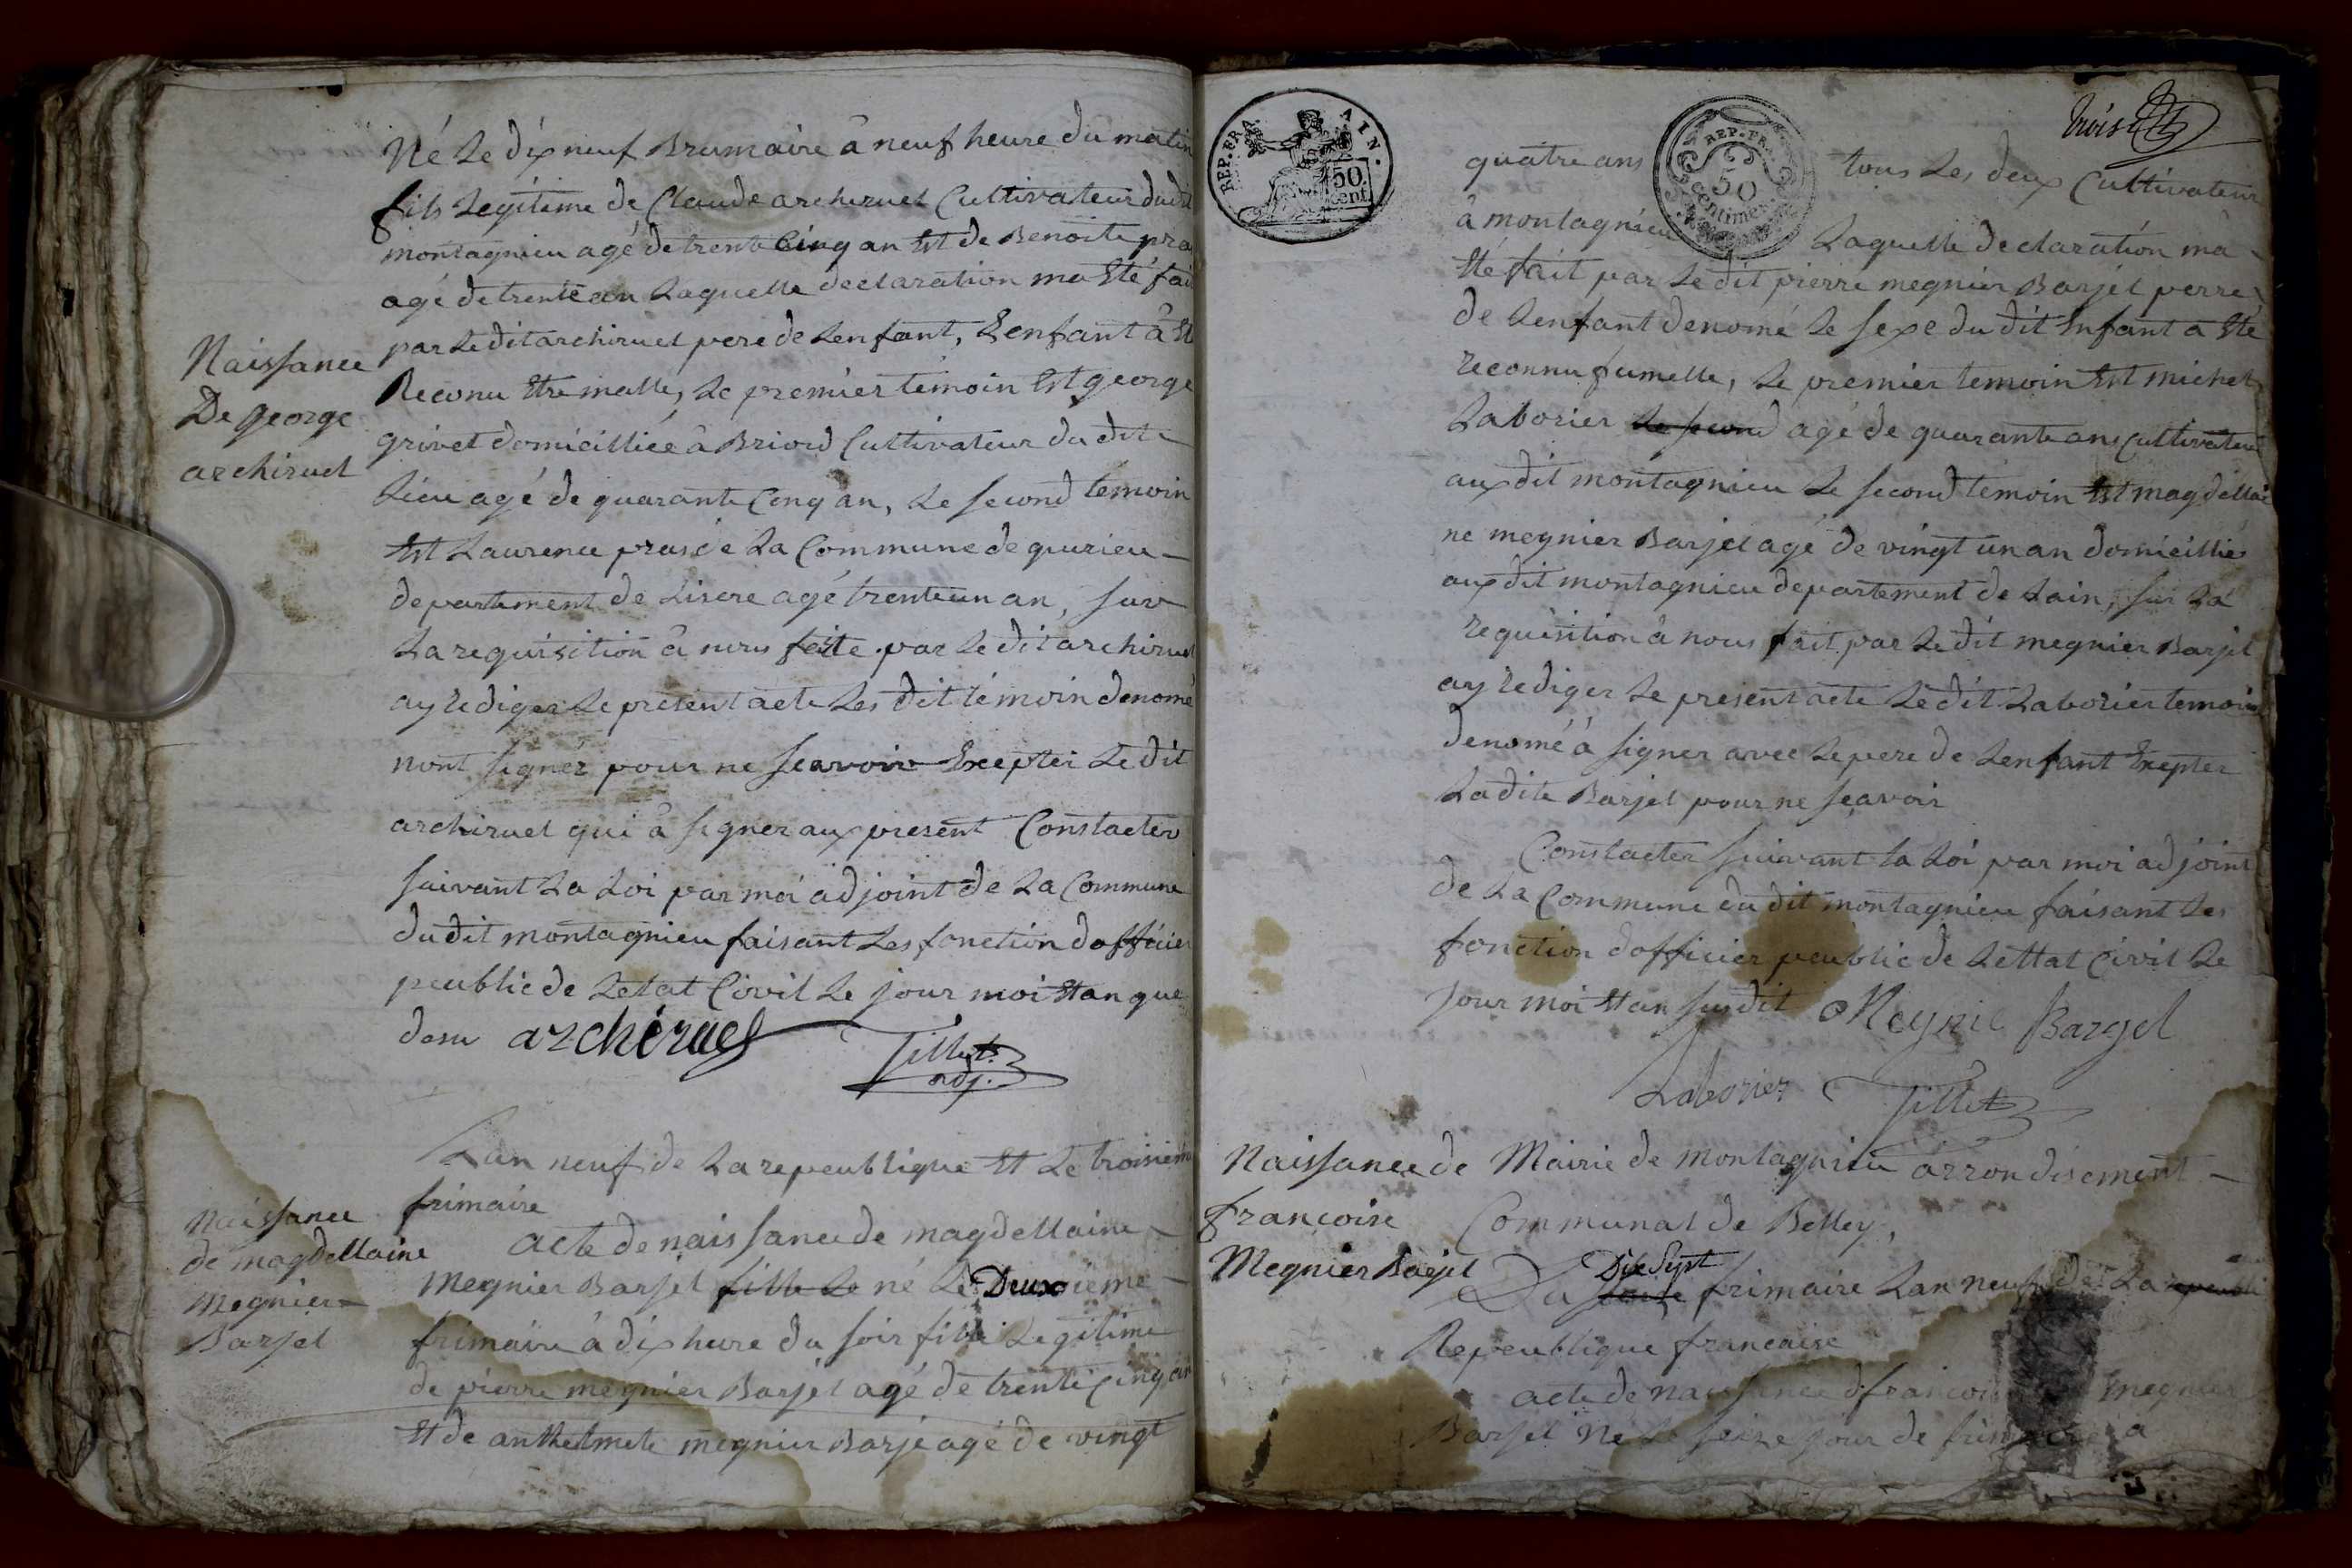 Né Le dix neuf Brumaire â neuf heure du matin
fils Legitime de Claude archiruel Cultivateur dudit
montagnieu agé de trente Cinq an Et de Benoite pra
agé de trente an Laquelle declaration ma Eté fait
par Ledit archiruel pere de Lenfant, Lenfant â Et
Naissance
De george
archiruel
Reconu Etre malle, Le premier temoin Est george
grivet domicilliée â Briord Cultivateur du dit
Lieu agé de quarante Cinq an, Le second temoin
Est Laurence pras de La Commune de quirieu
departement de Lisere agé trente un an, sur
La requisition â nous faite par Le dit archiruel
ay rediger Le present acte Les dit témoin denomé
nont signér pour ne sçavoir Excepter Le dit
archiruel qui â signer aux present Constacter
suivant La Loi par moi adjoint de La Commune
du dit montagnieu faisant Les fonction dofficier
peublic de Letat Civil Le jour moi Et an que
desu archiruel
Tillet
adj.
Lan neuf de La repeublique Et Le troisiem
frimaire
Naissance
de magdellaine
Megnier
Barjel
acte de naissance de magdellaine
Megnier Barjel fille Le né Le Deuxoieme
frimaire â dix heure du soir fille Legitime
de pierre megnier Barjel agé de trente Cinq an
Et de anthelmete megnier Barje agé de vingt
REP. FRA. AIN.
50 cent.
REP. FRA.
50
Centimes
trois
quatre ans tous Les deux Cultivateur
â montagnieu Laquelle declaration mâ
Eté fait par Le dit pierre megnier Barjel perre
de Lenfant denomé Le sexe du dit Enfant a Ete
reconnu fumelle, Le premier temoin Est michel
Laborier Le second agé de quarante ans cultivateur
aux dit montagnieu Le second témoin Est magdellai
ne megnier Barjel agé de vingt un an domicilliée
aux dit montagnieu departement de Lain, sur La
requisition â nous fait par Le dit megnier Barjel
ay rediger Le present acte Le dit Laborier temoin
denomé â signer avec Le pere de Lenfant Excepter
La dite Barjel pour ne sçavoir
Constacter suivant la Loi par moi adjoint
de La Commune du dit montagnieu faisant Les
fonction dofficier peublic de Lettat Civil Le
Jour moi Et an susdit Meynie Bargel
Laborier Tillet
Naissance de
françoise
Megnier Barjel
Mairie de montagnieu arrondisement
Communal de Belley,
Du Dix Sept frimaire Lan neuf de La
Repeublique françaisse
acte de naissance de françoise megnier
Barjel Né Le seize jour de frimaire a